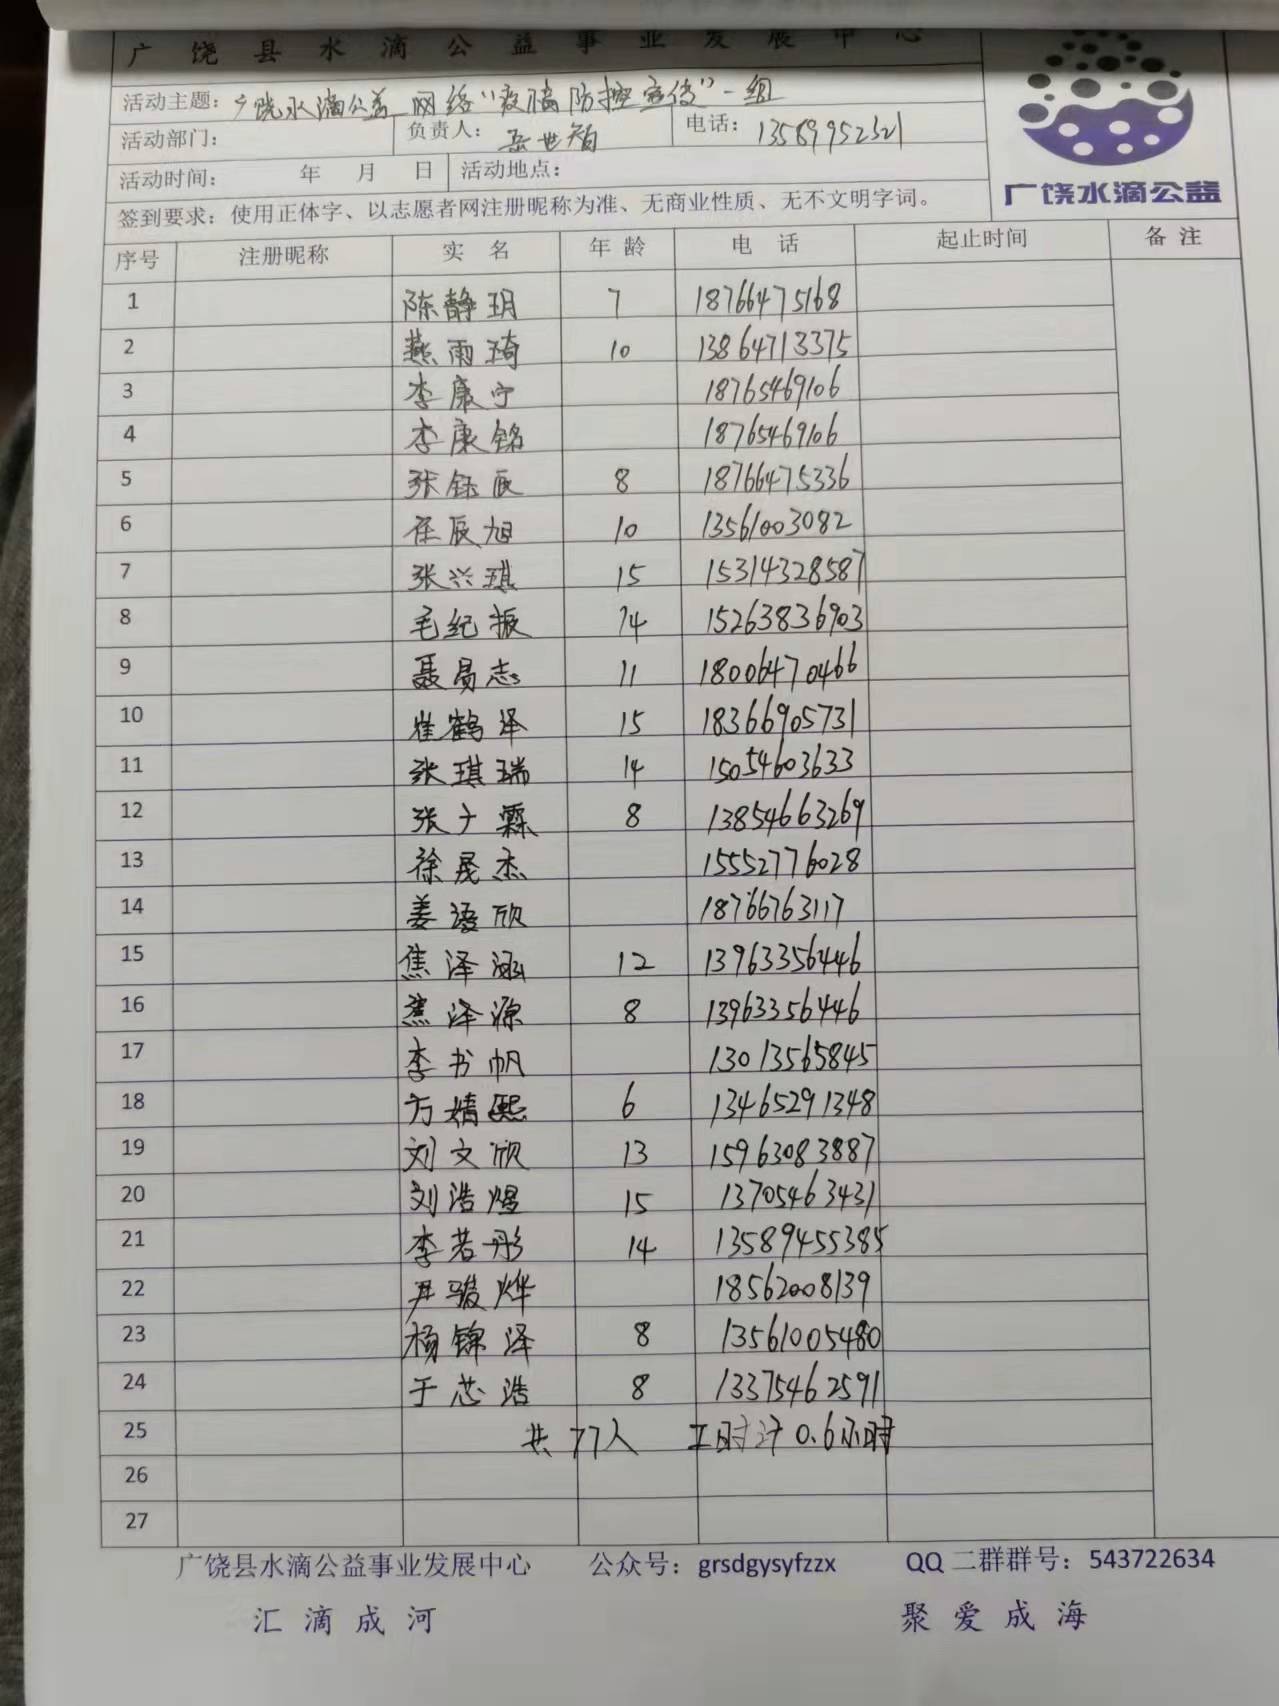 广饶县水滴公益事业发展中心
活动主题：广饶水滴公益 网络“疫情防控宣传”一组
活动部门： 负责人：岳世智 电话：13589952321
活动时间： 年 月 日 活动地点：
广饶水滴公益
签到要求：使用正体字、以志愿者网注册昵称为准、无商业性质、无不文明字词。
序号 注册昵称 实名 年龄 电话 起止时间 备注
1 陈静玥 7 18766475168
2 燕雨琦 10 13864713375
3 李康宁 18765469106
4 李康铭 18765469106
5 张钰辰 8 18766475336
6 任辰旭 10 13561003082
7 张兴琪 15 15314328587
8 毛纪振 14 15263836903
9 聂勇志 11 18006470466
10 崔鹤泽 15 18366905731
11 张琪瑞 14 15054603633
12 张子霖 8 13854663269
13 徐晟杰 15552776028
14 姜语欣 18766763117
15 焦泽涵 12 13963356446
16 焦泽源 8 13963356446
17 李书帆 13013565845
18 方婧熙 6 13465291348
19 刘文欣 13 15963083887
20 刘浩煜 15 13705463431
21 李若彤 14 13589455385
22 尹骏烨 18562008139
23 杨锦泽 8 13561005480
24 于芯浩 8 13375462591
25 共77人 工时计0.6小时
26
27
广饶县水滴公益事业发展中心 公众号：grsdgysyfzzx QQ二群群号：543722634
汇滴成河 聚爱成海